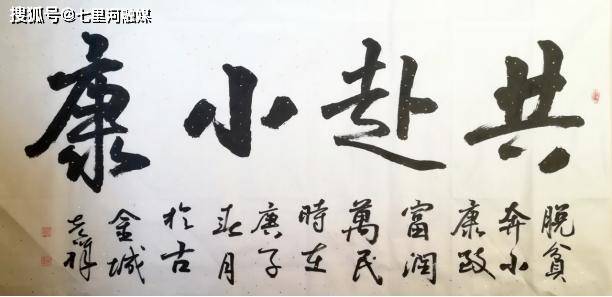 搜狐号@七里河融媒
共赴小康
脱貧
奔小
康致
富润
萬民
時在
庚子
春月
於古
金城